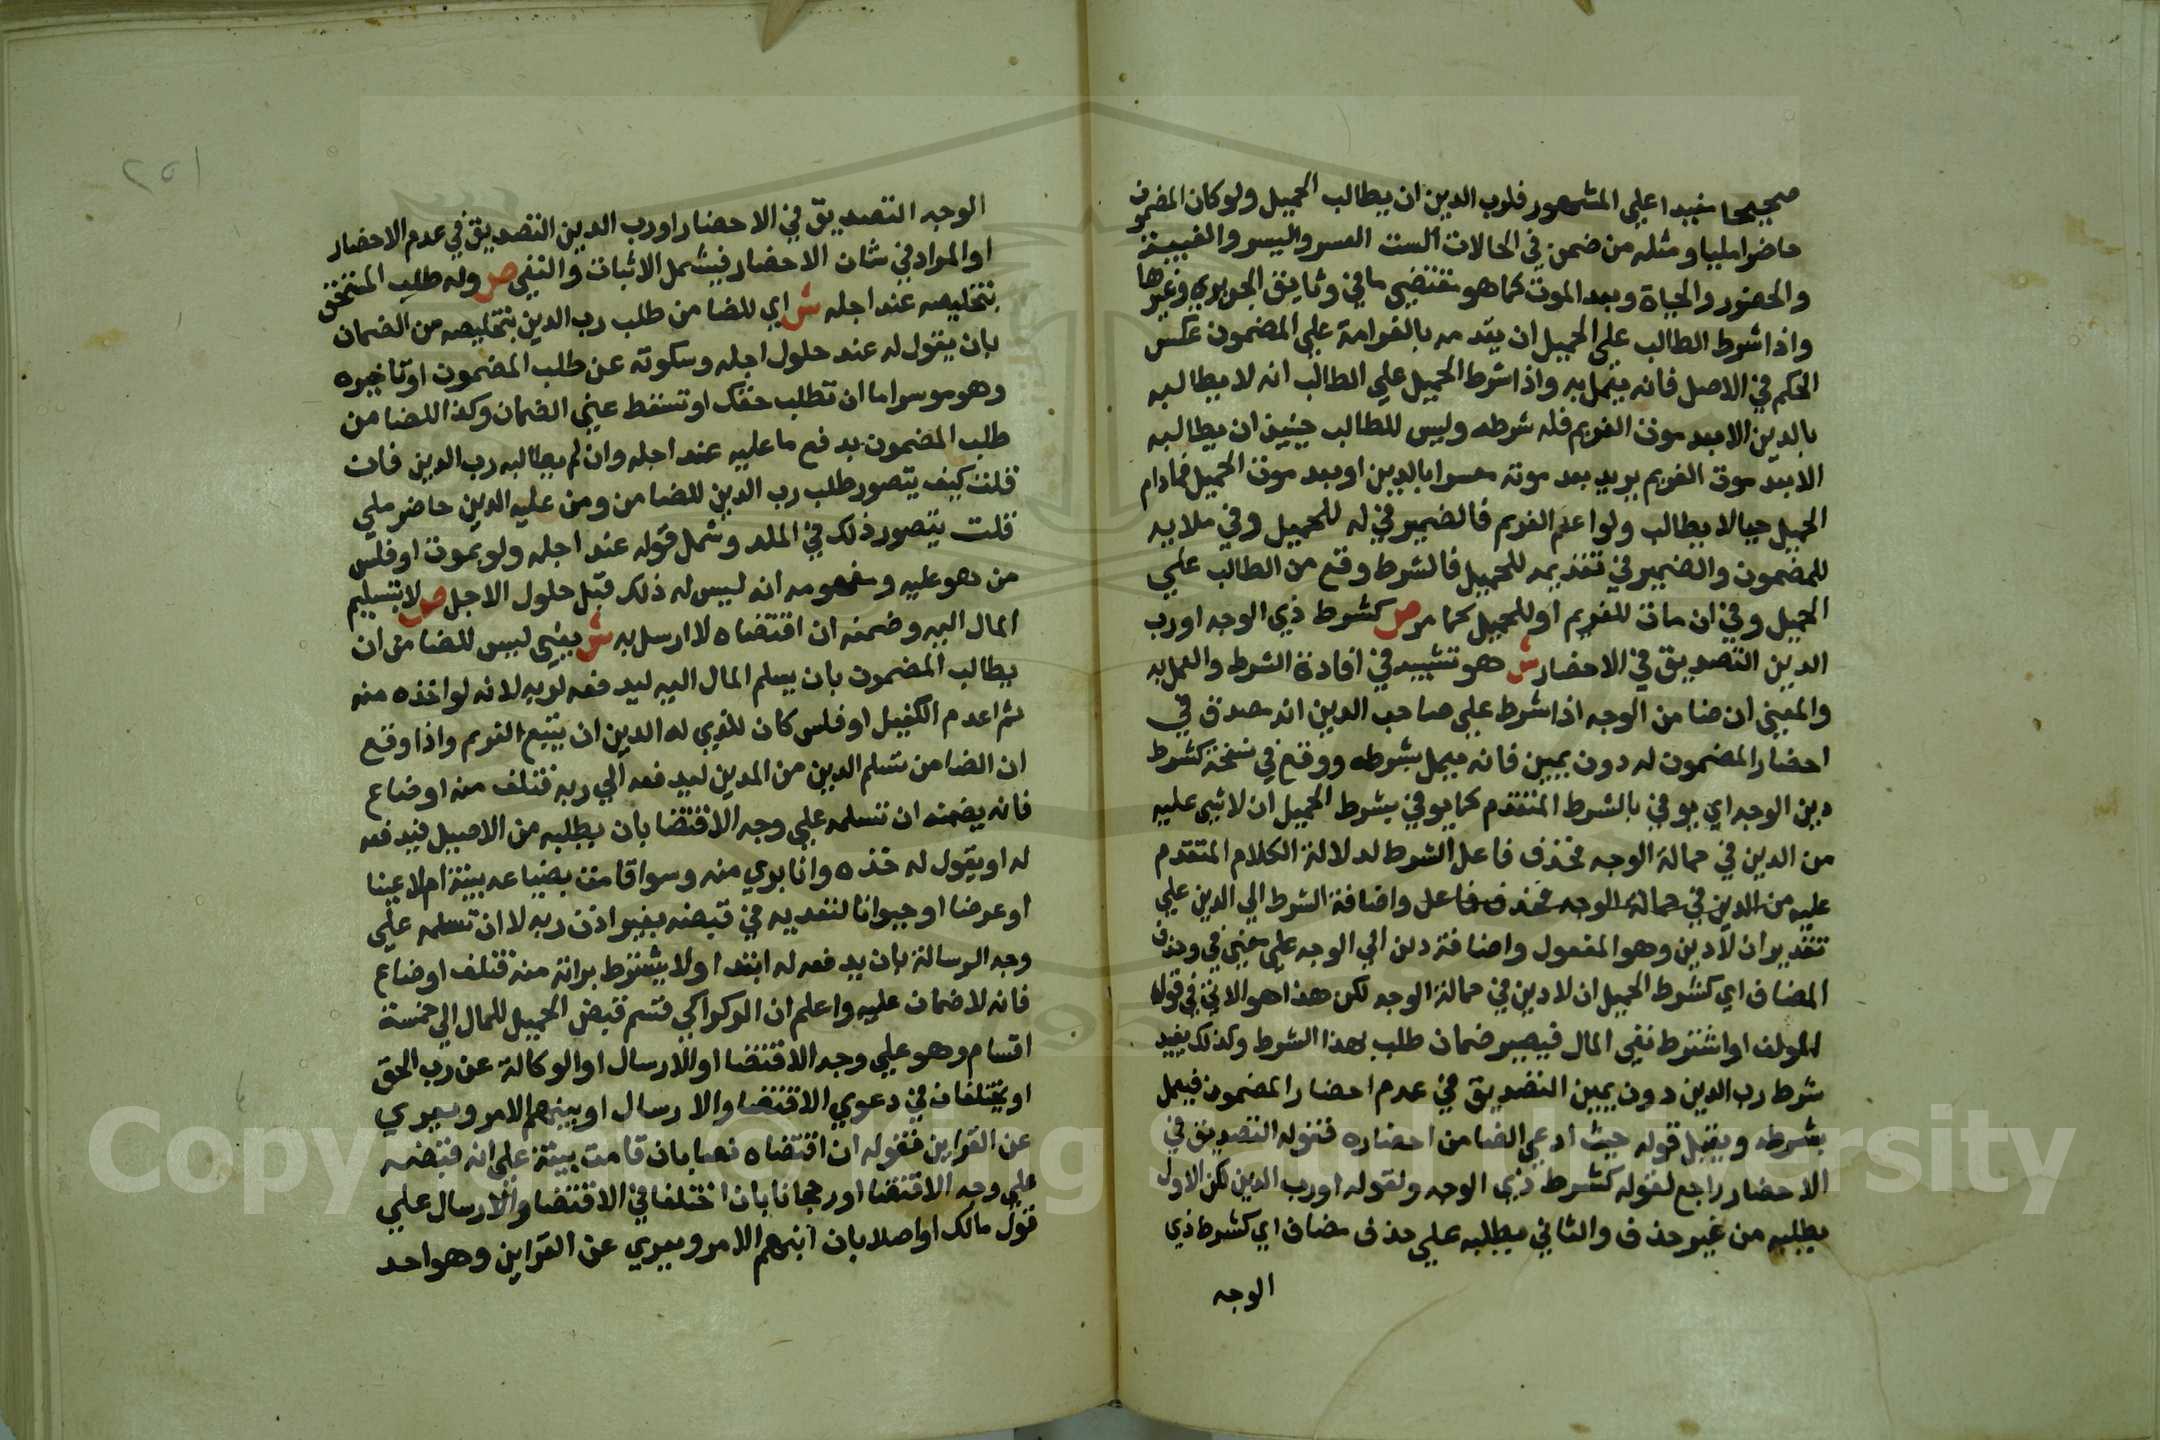 صحيحا مفيدا علي المشهور فلرب الدين ان يطالب الحميل ولو كان المضمون
حاضرا مليا ومثله من ضمن في الحالات الست العسر واليسر والغيبة
والحضور والحياة وبعد الموت كما هو مقتضي ما في وثايق الجزيري وغيرها
واذا شرط الطالب علي الحميل ان يقدمه بالغرامة علي المضمون عكس
الحكم في الاصل فانه يعمل به واذا شرط الحميل علي الطالب انه لا يطالبه
بالدين الا بعد موت الغريم فله شرطه وليس للطالب حينيذ ان يطالبه
الا بعد موت الغريم يريد بعد موته معسرا بالدين او بعد موت الحميل فما دام
الحميل حيا لا يطالب ولو اعدم الغريم فالضمير في له للحميل وفي ملايه
للمضمون والضمير في تقديمه للحميل فالشرط وقع من الطالب علي
الحميل وفي ان مات للغريم او للحميل كما مر ص كشرط ذي الوجه او رب
الدين التصديق في الاحضار ش هو تشبيه في افادة الشرط والعمل به
والمعني ان ضامن الوجه اذا شرط علي صاحب الدين انه مصدق في
احضار المضمون له دون يمين فانه يعمل بشرطه ووقع في نسخة كشرط
دين الوجه اي يوفي بالشرط المتقدم كما يوفي بشرط الحميل ان لا شي عليه
من الدين في حمالة الوجه فحذف فاعل الشرط لدلالة الكلام المتقدم
عليه من الدين في حمالة الوجه فحذف فاعل واضافة الشرط الي الدين علي
تقدير ان لا دين وهو المفعول واضافة دين الي الوجه علي معني في وحذف
المضاف اي كشرط الحميل ان لا دين في حمالة الوجه لكن هذا هو الاتي في قول
المولف او اشترط نفي المال فيصير ضمان طلب بهذا الشرط وكذلك يفيد
شرط رب الدين دون يمين التصديق في عدم احضار المضمون فيعمل
بشرطه ويقبل قوله حيث ادعي الضامن احضاره فقوله التصديق في
الاحضار راجع لقوله كشرط ذي الوجه ولقوله او رب الدين لكن الاول
يطلبه من غير حذف والثاني يطلبه علي حذف مضاف اي كشرط ذي
الوجه
٢٥١
الوجه التصديق في الاحضار او رب الدين التصديق في عدم الاحضار
او المراد في شان الاحضار فيشمل الاثبات والنفي ص وله طلب المستحق
بتخليصه عند اجله ش اي للضامن طلب رب الدين بتخليصه من الضمان
بان يقول له عند حلول اجله وسكوته عن طلب المضمون او تاخيره
وهو موسر اما ان تطلب حقك او تسقط عني الضمان وكذا للضامن
طلب المضمون بدفع ما عليه عند اجله وان لم يطالبه رب الدين فان
قلت كيف يتصور طلب رب الدين للضامن ومن عليه الدين حاضر ملي
قلت يتصور ذلك في الملد وشمل قوله عند اجله ولو بموت او فلس
من هو عليه ومفهومه انه ليس له ذلك قبل حلول الاجل ص لا بتسليم
المال اليه وضمنه ان اقتضاه لا ارسل به ش يعني ليس للضامن ان
يطالب المضمون بان يسلم المال اليه ليدفعه لربه لانه لو اخذه منه
ثم اعدم الكفيل او فلس كان للذي له الدين ان يتبع الغريم واذا وقع
ان الضامن تسلم الدين من المدين ليدفعه الي ربه فتلف منه او ضاع
فانه يضمنه ان تسلمه علي وجه الاقتضا بان يطلبه من الاصيل فيدفعه
له او يقول له خذه وانا بري منه وسوا قامت بضياعه بينة ام لا عينا
او عرضا او حيوانا لتعديه في قبضه بغير اذن ربه لا ان تسلمه علي
وجه الرسالة بان يدفعه له ابتدا ولا يشترط براته منه فتلف او ضاع
فانه لا ضمان عليه واعلم ان الركراكي قسم قبض الحميل للمال الي خمسة
اقسام وهو علي وجه الاقتضا او الارسال او الوكالة عن رب الحق
او يختلفان في دعوي الاقتضا والارسال او ينبهم الامر ويعري
عن القراين فقوله ان اقتضاه نصا بان قامت بينة علي انه قبضه
علي وجه الاقتضا او رجحانا بان اختلفا في الاقتضا والارسال علي
قول مالك او اصلا بان انبهم الامر ويعري عن القراين وهو احد
Copyright © King Saud University